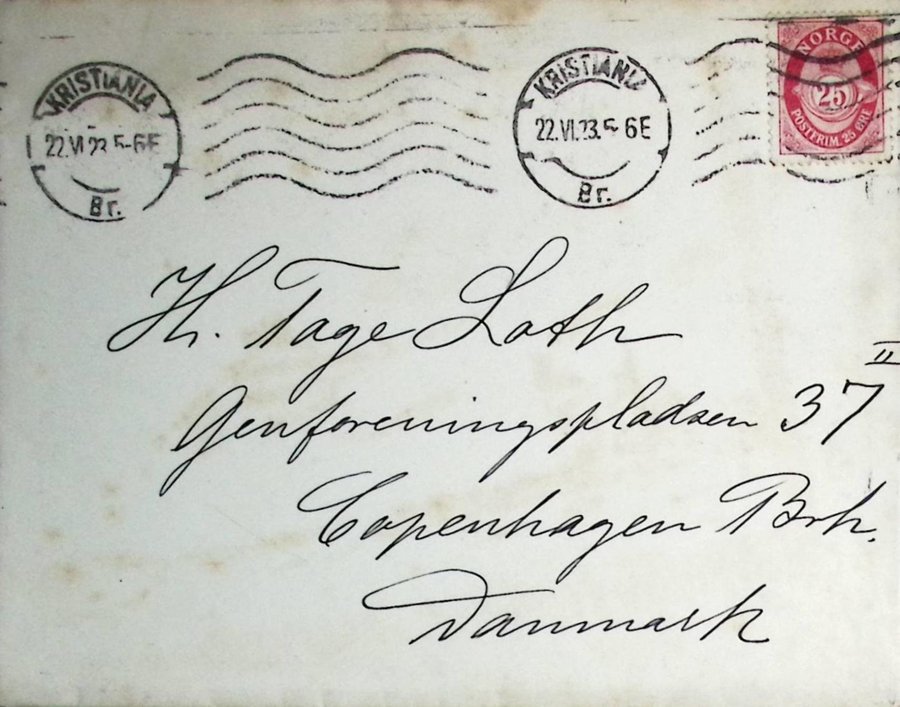 KRISTIANIA
22.VI.23.5-6E
Br.
KRISTIANIA
22.VI.23.5-6E
Br.
NORGE
25
POSTFRIM. 25 ØRE
Hr. Tage Loth
Genforeningspladsen 37 II
Copenhagen Brh.
Danmark